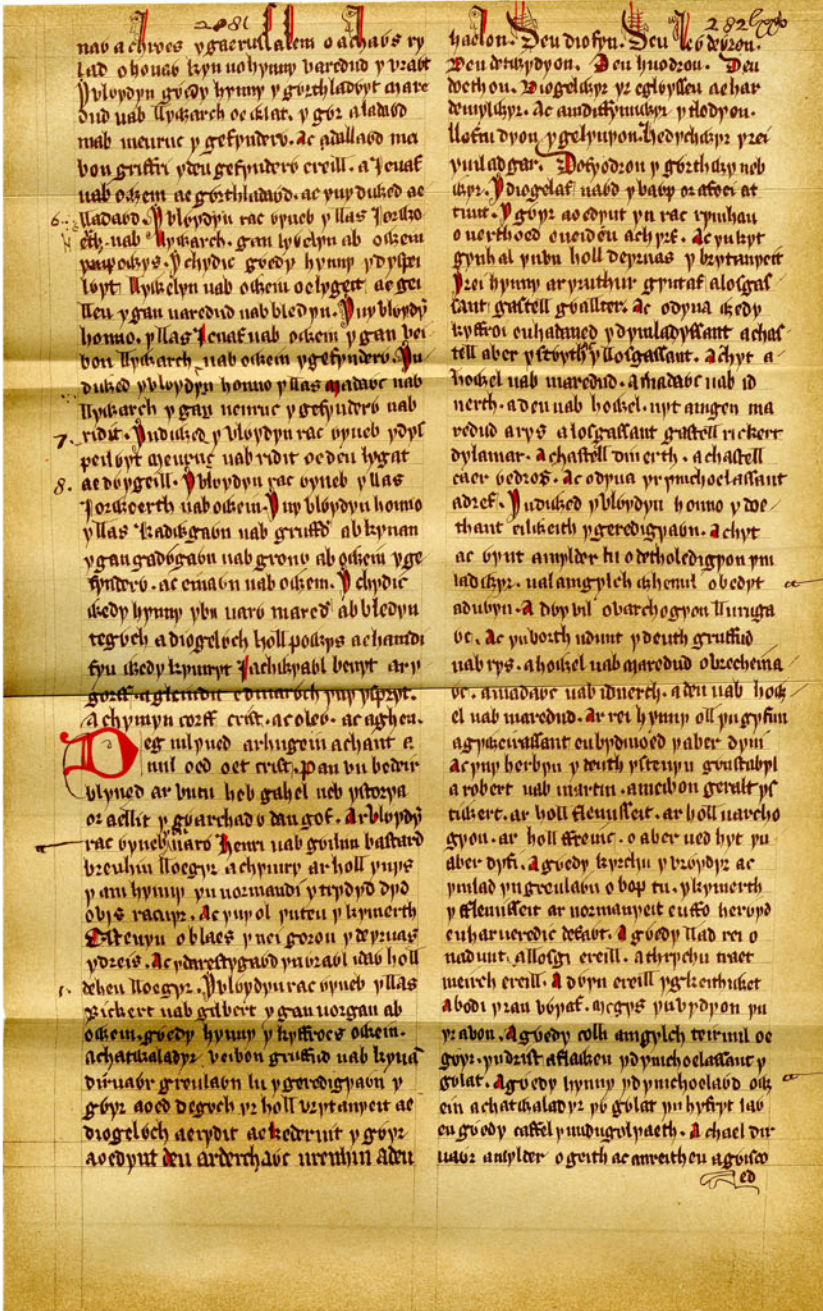 281
naỽ achroes ygaerussalem o achaỽs ry
lad ohonaỽ kyn no hynny varedud y vraỽt
Ylỽydyn gỽedy hynny y gỽrthladỽyt mare
dud uab llywarch oe wlat. y gỽr aladaỽd
mab meuruc y gefynderỽ. Ac adallaỽd ma
bon griffri ydeu gefynderỽ ereill. a Jeuaf
uab owein ae gỽrthladaỽd. ac ynydiwed ae
6. lladaỽd. Y ulỽydyn rac ỽyneb y llas Jorwo
erth. uab llywarch. gan lywelyn ab owein
ympowys. Ychydic gỽedy hynny ydyspei
lỽyt llywelyn uab owein oelygeit ae gei
lleu y gan varedud uab bledyn. Ynyblỽydyn
honno. yllas Jeuaf uab owein y gan vei
bon llywarch uab owein ygefynderỽ. Yn
diwed yblỽydyn honno yllas madaỽc uab
llywarch y gan ueuruc y gefynderỽ uab
7. ridit. Yndiwed y vlỽydyn rac ỽyneb ydys
peilỽyt meuruc uab ridit oedeu lygat
8. ae dỽygeill. Yblỽydyn rac ỽyneb y llas
Jorwoerth uab owein. Yny blỽydyn honno
yllas kadỽgaỽn uab gruffud ab kynan
ygan gadỽgaỽn uab gronỽ ab owein yge
fynderỽ. ac einaỽn uab owein. Ychydic
wedy hynny ybu uarỽ mared ab bledyn
tegỽch adiogelỽch holl powys ae hamdi
fyn wedy kymryt Jachwyaỽl benyt ar y
gorff. aglendit edmarỽch ynyyspryt.
Achymyn corff crist. ac oleỽ. ac aghen.
Deg mlyned arhugein achant a
mil oed oet crist. pan vu bedeir
blyned ar vntu heb gahel neb ystorya
or aellit y gỽarchadỽ dan gof. Arvlỽydyn
rac ỽyneb y uarỽ Henri uab gỽilim bastard
brenhin lloegyr achymry ar holl ynys
y am hynny yn normandi ytrydyd dyd
o vis racuyr. Ac yny ol ynteu y kymerth
Estefyn o blaes y nei goron y deyrnas
ydreis. Ac ydarestygaỽd ynvraỽl idaỽ holl
1. deheu lloegyr. Yvlỽydyn rac ỽyneb yllas
Rickert uab gilbert y gan uorgan ab
owein. gỽedy hynny y kyffroes owein.
achatwaladyr veibon gruffud uab kynan
diruaỽr greulaỽn lu y geredigyaỽn y
gỽyr aoed degỽch yr holl vrytanyeit ae
diogelỽch aerydit ae kedernit y gỽyr
aoedynt deu arderchaỽc urenhin adeu
282
haelon. Deu diofyn. Deu leỽ deỽron.
Deu detwydyon. Deu huodron. Deu
doethon. Diogelwyr yr eglỽysseu ae har
demylwyr. Ac amdiffynwyr y tlodyon.
llofrudyon y gelynyon. hedychwyr yrei
ymladgar. Dofyodron y gỽrthỽynneb
wyr. Ydiogelaf naỽd y baỽp or affoei at
tunt. Y gỽyr aoedynt yn rac rymhau
o nerthoed eneideu achyrff. Ac ynkyt
gynhal ynvn holl deyrnas y brytanyeit
Yrei hynny aryruthur gyntaf alosgas
sant gastell gỽallter. Ac odyna wedy
kyffroi euhadaned ydymladyssant achas
tell aber ystỽyth yllosgassant. achyt a
howel uab maredud. amadaỽc uab id
nerth. adeu uab howel. nyt amgen ma
redud arys alosgassant gastell rickert
dylamar. achastell dinerth. achastell
caer wedros. Ac odyna yr ymchoelassant
adref. Yndiwed yblỽydyn honno y doe
thant eilweith ygeredigyaỽn. Achyt
ac ỽynt amylder llu odetholedigyon ym
ladwyr. ual amgylch whemil obedyt
aduỽyn. A dỽy vil ovarchogyon lluruga
ỽc. Ac ynborth udunt ydeuth gruffud
uab rys. ahowel uab maredud ovrecheina
ỽc. amadaỽc uab idnerth. adeu uab how
el uab maredud. Ar rei hynny oll yngyfun
agyweirassant eubydinoed yaber dyui
Acyny herbyn ydeuth ystefyn gỽnstabyl
arobert uab martin. ameibon geralt ys
tiwert. ar holl flemisseit. ar holl uarcho
gyon. ar holl ffreinc. o aber ned hyt yn
aber dyfi. Agỽedy kyrchu y vrỽydyr ac
ymlad yngreulaỽn o bop tu. ykymerth
y fflemisseit ar normanyeit euffo herỽyd
euharueredic defaỽt. Agỽedy llad rei o
nadunt. allosgi ereill. athrychu traet
meirch ereill. Adỽyn ereill ygkeithiwet
Abodi yran vỽyaf. megys ynvydyon yn
yr auon. Agỽedy colli amgylch teirmil oe
gỽyr. yndrist aflawen ydymchoelassant y
gỽlat. Agỽedy hynny ydymchoelaỽd ow
ein achatwaladyr yỽ gỽlat ynhyfryt laỽ
en gỽedy caffel y uudugolyaeth. Achael dir
uaỽr amylder ogeith ac anreitheu agỽisco
ed